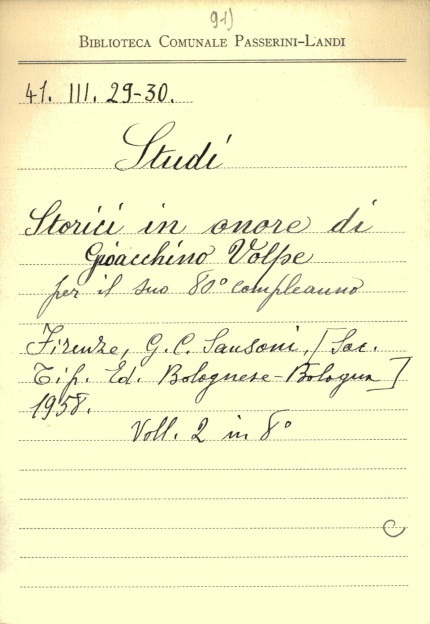 91)
BIBLIOTECA COMUNALE PASSERINI-LANDI
41. III. 29-30.
Studi
Storici in onore di
Gioacchino Volpe
per il suo 80° compleanno
Firenze, G. C. Sansoni, [Soc.
Tip. Ed. Bolognese-Bologna]
1958.
Voll. 2 in 8°
C